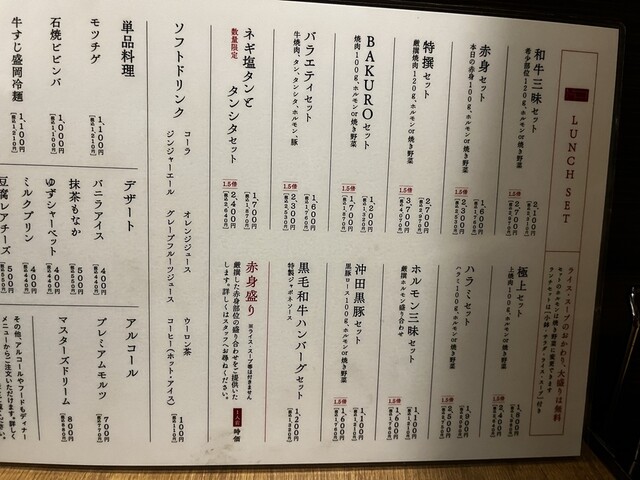 LUNCH SET
ライス・スープのおかわり、大盛りは無料
セットのホルモンは焼き野菜に変更できます
ランチセットは「小鉢・チョレギ・ライス・スープ」付き
和牛三昧セット
希少部位120g、ホルモンor焼き野菜
2,100円
1.5倍 2,700円
赤身セット
本日の赤身100g、ホルモンor焼き野菜
1,600円
1.5倍 2,300円
特撰セット
厳撰焼肉120g、ホルモンor焼き野菜
2,700円
1.5倍 3,700円
BAKUROセット
焼肉100g、ホルモンor焼き野菜
1,200円
1.5倍 1,700円
バラエティセット
牛焼肉、タン、タンシタ、ホルモン、豚
1,600円
1.5倍 2,300円
ネギ塩タンと
タンシタセット
数量限定
1,700円
1.5倍 2,400円
極上セット
上焼肉100g、ホルモンor焼き野菜
1,800円
1.5倍
ハラミセット
ハラミ100g、ホルモンor焼き野菜
1,900円
1.5倍
ホルモン三昧セット
厳撰ホルモン盛り合わせ
1,100円
1.5倍 1,600円
沖田黒豚セット
黒豚ロース100g、ホルモンor焼き野菜
1,100円
1.5倍 1,600円
黒毛和牛ハンバーグセット
特製ジャポネソース
1,200円
赤身盛り
※ライス・スープ等は付きません
厳選した赤身部位の盛り合わせをご提供いた
します。詳しくはスタッフへお尋ねください。
1人前 時価
ソフトドリンク
コーラ
ジンジャーエール
オレンジジュース
グレープフルーツジュース
ウーロン茶
コーヒー(ホット・アイス)
100円
単品料理
モツチゲ
1,100円
石焼ビビンバ
1,000円
牛すじ盛岡冷麺
1,100円
デザート
バニラアイス
400円
抹茶もなか
500円
ゆずシャーベット
400円
ミルクプリン
400円
豆腐レアチーズ
500円
アルコール
プレミアムモルツ
700円
マスターズドリーム
800円
その他、アルコールやフードもディナー
メニューからご注文いただけます。詳しく